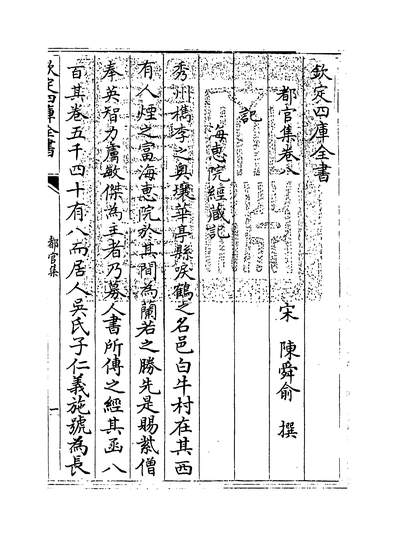 欽定四庫全書
都官集卷八
宋 陳舜俞 撰
記
海惠院經藏記
秀州檇李之奥壤華亭縣唳鶴之名邑白牛村在其西
有人煙之富海惠院於其間為蘭若之勝先是賜紫僧
奉英智力膚敏傑為主者乃募人書所傳之經其函八
百其巻五千四十有八而居人吳氏子仁義施號為長
欽定四庫全書
都官集
一